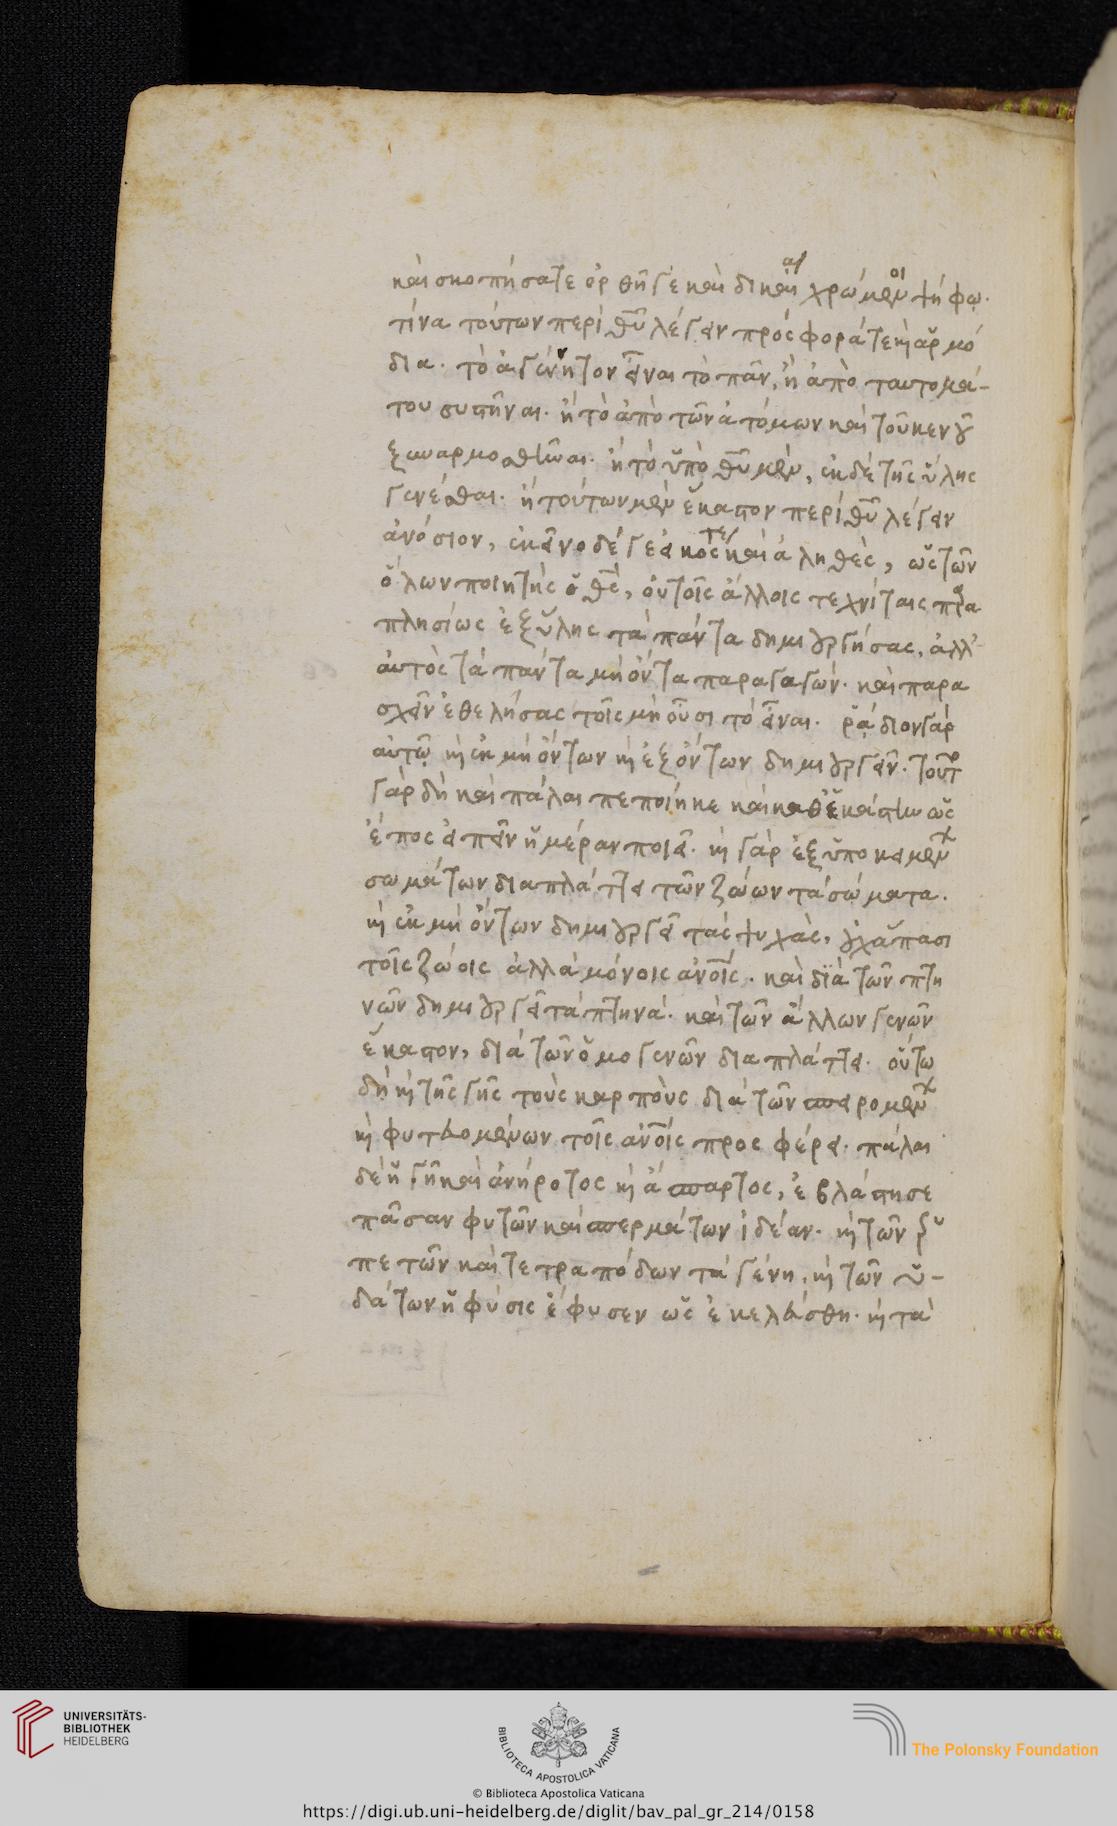 καὶ σκοπήσατε ὀρθῇ γε καὶ δικαίᾳ χρώμενοι ψήφῳ.
τίνα τούτων περὶ θῦ λέγειν πρόσφορά τε καὶ ἁρμό
δια. τὸ ἀγέννητον εἶναι τὸ πᾶν, ἢ ἀπὸ ταυτομά-
του συστῆναι. ἢ τὸ ἀπὸ τῶν ἀτόμων καὶ τοῦ κενοῦ
ξυναρμοσθῆναι. ἢ τὸ ὑπὸ θῦ μὲν, ἐκ δὲ τῆς ὕλης
γενέσθαι. ἢ τούτων μὲν ἕκαστον περὶ θῦ λέγειν
ἀνόσιον, ἐκεῖνο δέ γε εἰκός τε καὶ ἀληθὲς, ὡς τῶν
ὅλων ποιητὴς ὁ θς, οὐ τοῖς ἄλλοις τεχνίταις παρα
πλησίως ἐξ ὕλης τὰ πάντα δημιουργήσας, ἀλλ'
αὐτὸς τὰ πάντα μὴ ὄντα παραγαγών. καὶ παρα
σχεῖν ἐθελήσας τοῖς μὴ οὖσι τὸ εἶναι. ῥᾴδιον γὰρ
αὐτῷ καὶ ἐκ μὴ ὄντων καὶ ἐξ ὄντων δημιουργεῖν. τοῦτο
γὰρ δὴ καὶ πάλαι πεποίηκε καὶ καθ' ἑκάστην ὡς
ἔπος εἰπεῖν ἡμέραν ποιεῖ. καὶ γὰρ ἐξ ὑποκειμένων
σωμάτων διαπλάττει τῶν ζώων τὰ σώματα.
καὶ ἐκ μὴ ὄντων δημιουργεῖ τὰς ψυχὰς, οὐχ ἅπασι
τοῖς ζώοις ἀλλὰ μόνοις ἀνοῖς. καὶ διὰ τῶν πτη
νῶν δημιουργεῖ τὰ πτηνά. καὶ τῶν ἄλλων γενῶν
ἕκαστον, διὰ τῶν ὁμογενῶν διαπλάττει. οὕτω
δὴ καὶ τῆς γῆς τοὺς καρποὺς διὰ τῶν σπειρομένων
καὶ φυτευομένων τοῖς ἀνοῖς προσφέρει. πάλαι
δὲ ἡ γῆ καὶ ἀνήροτος καὶ ἄσπαρτος, ἐβλάστησε
πᾶσαν φυτῶν καὶ σπερμάτων ἰδέαν. καὶ τῶν ἑρ
πετῶν καὶ τετραπόδων τὰ γένη. καὶ τῶν ὑ-
δάτων ἡ φύσις ἔφυσεν ὡς ἐκελεύσθη. καὶ τὰ
UNIVERSITÄTS-
BIBLIOTHEK
HEIDELBERG
BIBLIOTECA APOSTOLICA VATICANA
The Polonsky Foundation
© Biblioteca Apostolica Vaticana
https://digi.ub.uni-heidelberg.de/diglit/bav_pal_gr_214/0158